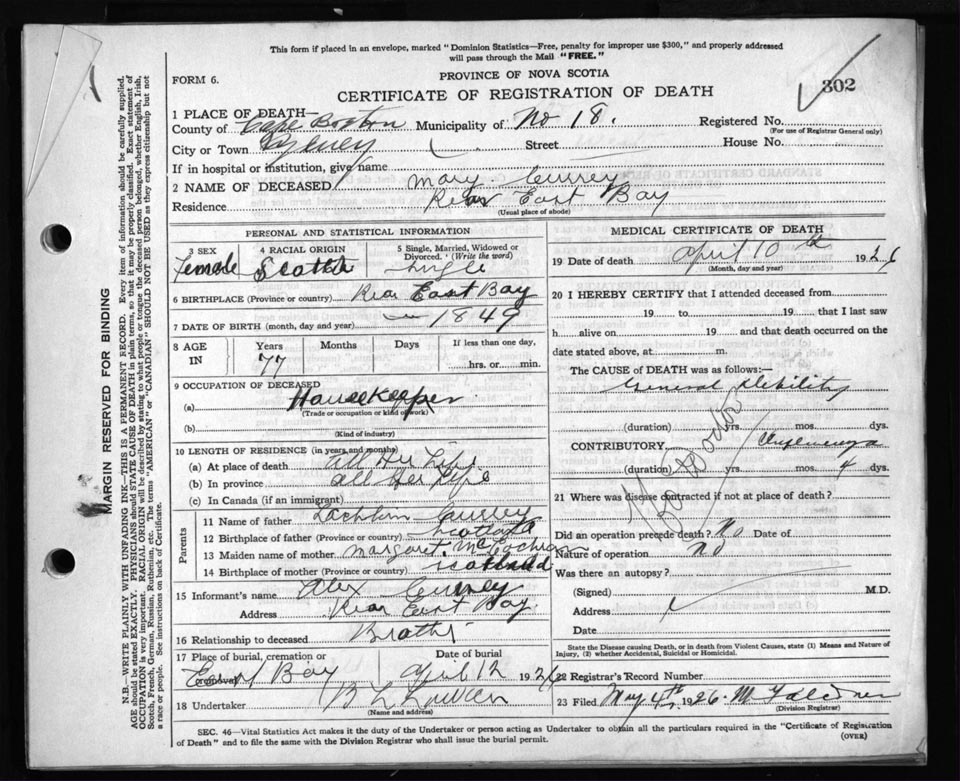 This form if placed in an envelope, marked "Dominion Statistics—Free, penalty for improper use $300," and properly addressed
will pass through the Mail "FREE."
FORM 6.
PROVINCE OF NOVA SCOTIA
302
CERTIFICATE OF REGISTRATION OF DEATH
1 PLACE OF DEATH—
County of Cape Breton Municipality of No 18. Registered No.
(For use of Registrar General only)
City or Town Sydney Street House No.
If in hospital or institution, give name
2 NAME OF DECEASED Mary Currey
Residence Rear East Bay
(Usual place of abode)
PERSONAL AND STATISTICAL INFORMATION
3 SEX 4 RACIAL ORIGIN 5 Single, Married, Widowed or
Divorced. (Write the word)
Female Scotch Single
6 BIRTHPLACE (Province or country) Rear East Bay
7 DATE OF BIRTH (month, day and year) 1849
8 AGE IN Years Months Days If less than one day,
77 hrs. or min.
9 OCCUPATION OF DECEASED
(a) Housekeeper
(Trade or occupation or kind of work)
(b)
(Kind of industry)
10 LENGTH OF RESIDENCE (in years and months)
(a) At place of death all Her Life
(b) In province all Her Life
(c) In Canada (if an immigrant)
Parents
11 Name of father Lachlan Currey
12 Birthplace of father (Province or country) Scotland
13 Maiden name of mother Margaret McEachran
14 Birthplace of mother (Province or country) Scotland
15 Informant's name Alex Currey
Address Rear East Bay.
16 Relationship to deceased Brother
17 Place of burial, cremation or removal Date of burial
East Bay April 12 1926
18 Undertaker
(Name and address)
MEDICAL CERTIFICATE OF DEATH
19 Date of death April 10th 1926
(Month, day and year)
20 I HEREBY CERTIFY that I attended deceased from
19 to 19 that I last saw
h alive on 19 and that death occurred on
date stated above, at m.
The CAUSE of DEATH was as follows:—
General Debility
(duration) yrs. mos. dys.
CONTRIBUTORY
(duration) yrs. mos. 4 dys.
No Doctor
21 Where was disease contracted if not at place of death?
Did an operation precede death? No Date of
Nature of operation No
Was there an autopsy?
(Signed) M.D.
Address
Date
State the Disease causing Death, or in death from Violent Causes, state (1) Means and Nature of
Injury, (2) whether Accidental, Suicidal or Homicidal.
22 Registrar's Record Number
23 Filed May 4th 1926
(Division Registrar)
SEC. 46—Vital Statistics Act makes it the duty of the Undertaker or person acting as Undertaker to obtain all the particulars required in the "Certificate of Registration
of Death" and to file the same with the Division Registrar who shall issue the burial permit.
(OVER)
MARGIN RESERVED FOR BINDING
N.B.—WRITE PLAINLY WITH UNFADING INK—THIS IS A PERMANENT RECORD. Every item of information should be carefully supplied.
AGE should be stated EXACTLY. PHYSICIANS should STATE CAUSE OF DEATH in plain terms, so that it may be properly classified. Exact statement of
OCCUPATION is very important. RACIAL ORIGIN will be described by stating to what people or tongue the deceased person belonged, whether English, Irish,
Scotch, French, German, Russian, Ruthenian, etc. The terms "AMERICAN" or "CANADIAN" SHOULD NOT BE USED as they express citizenship but not
a race or people. See instructions on back of Certificate.